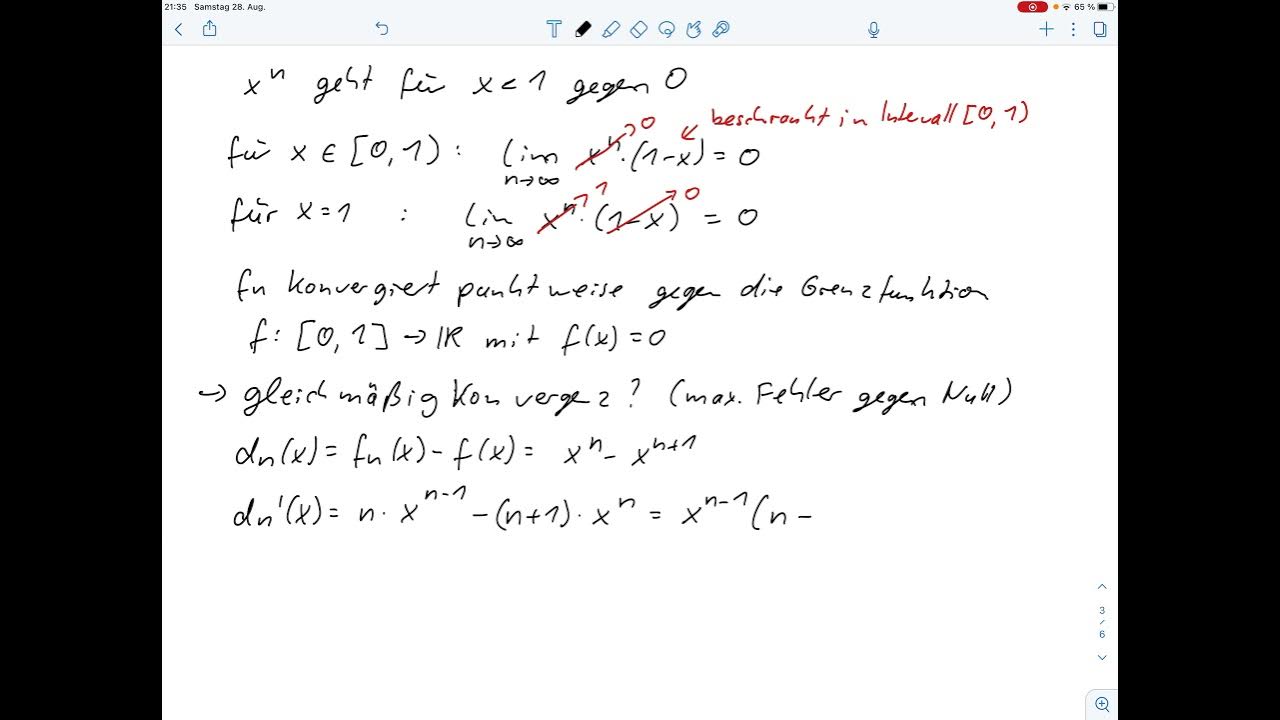 21:35 Samstag 28. Aug. 65 %
xⁿ geht für x < 1 gegen 0
beschränkt in Intervall [0, 1)
für x ∈ [0, 1) : lim n→∞ xⁿ → 0 · (1-x) = 0
für x = 1 : lim n→∞ xⁿ → 1 · (1-x) → 0 = 0
fn konvergiert punktweise gegen die Grenzfunktion
f: [0, 1] → ℝ mit f(x) = 0
→ gleichmäßig Konvergenz? (max. Fehler gegen Null)
dn(x) = fn(x) - f(x) = xⁿ - xⁿ⁺¹
dn'(x) = n · xⁿ⁻¹ - (n+1) · xⁿ = xⁿ⁻¹ (n -
3
/
6